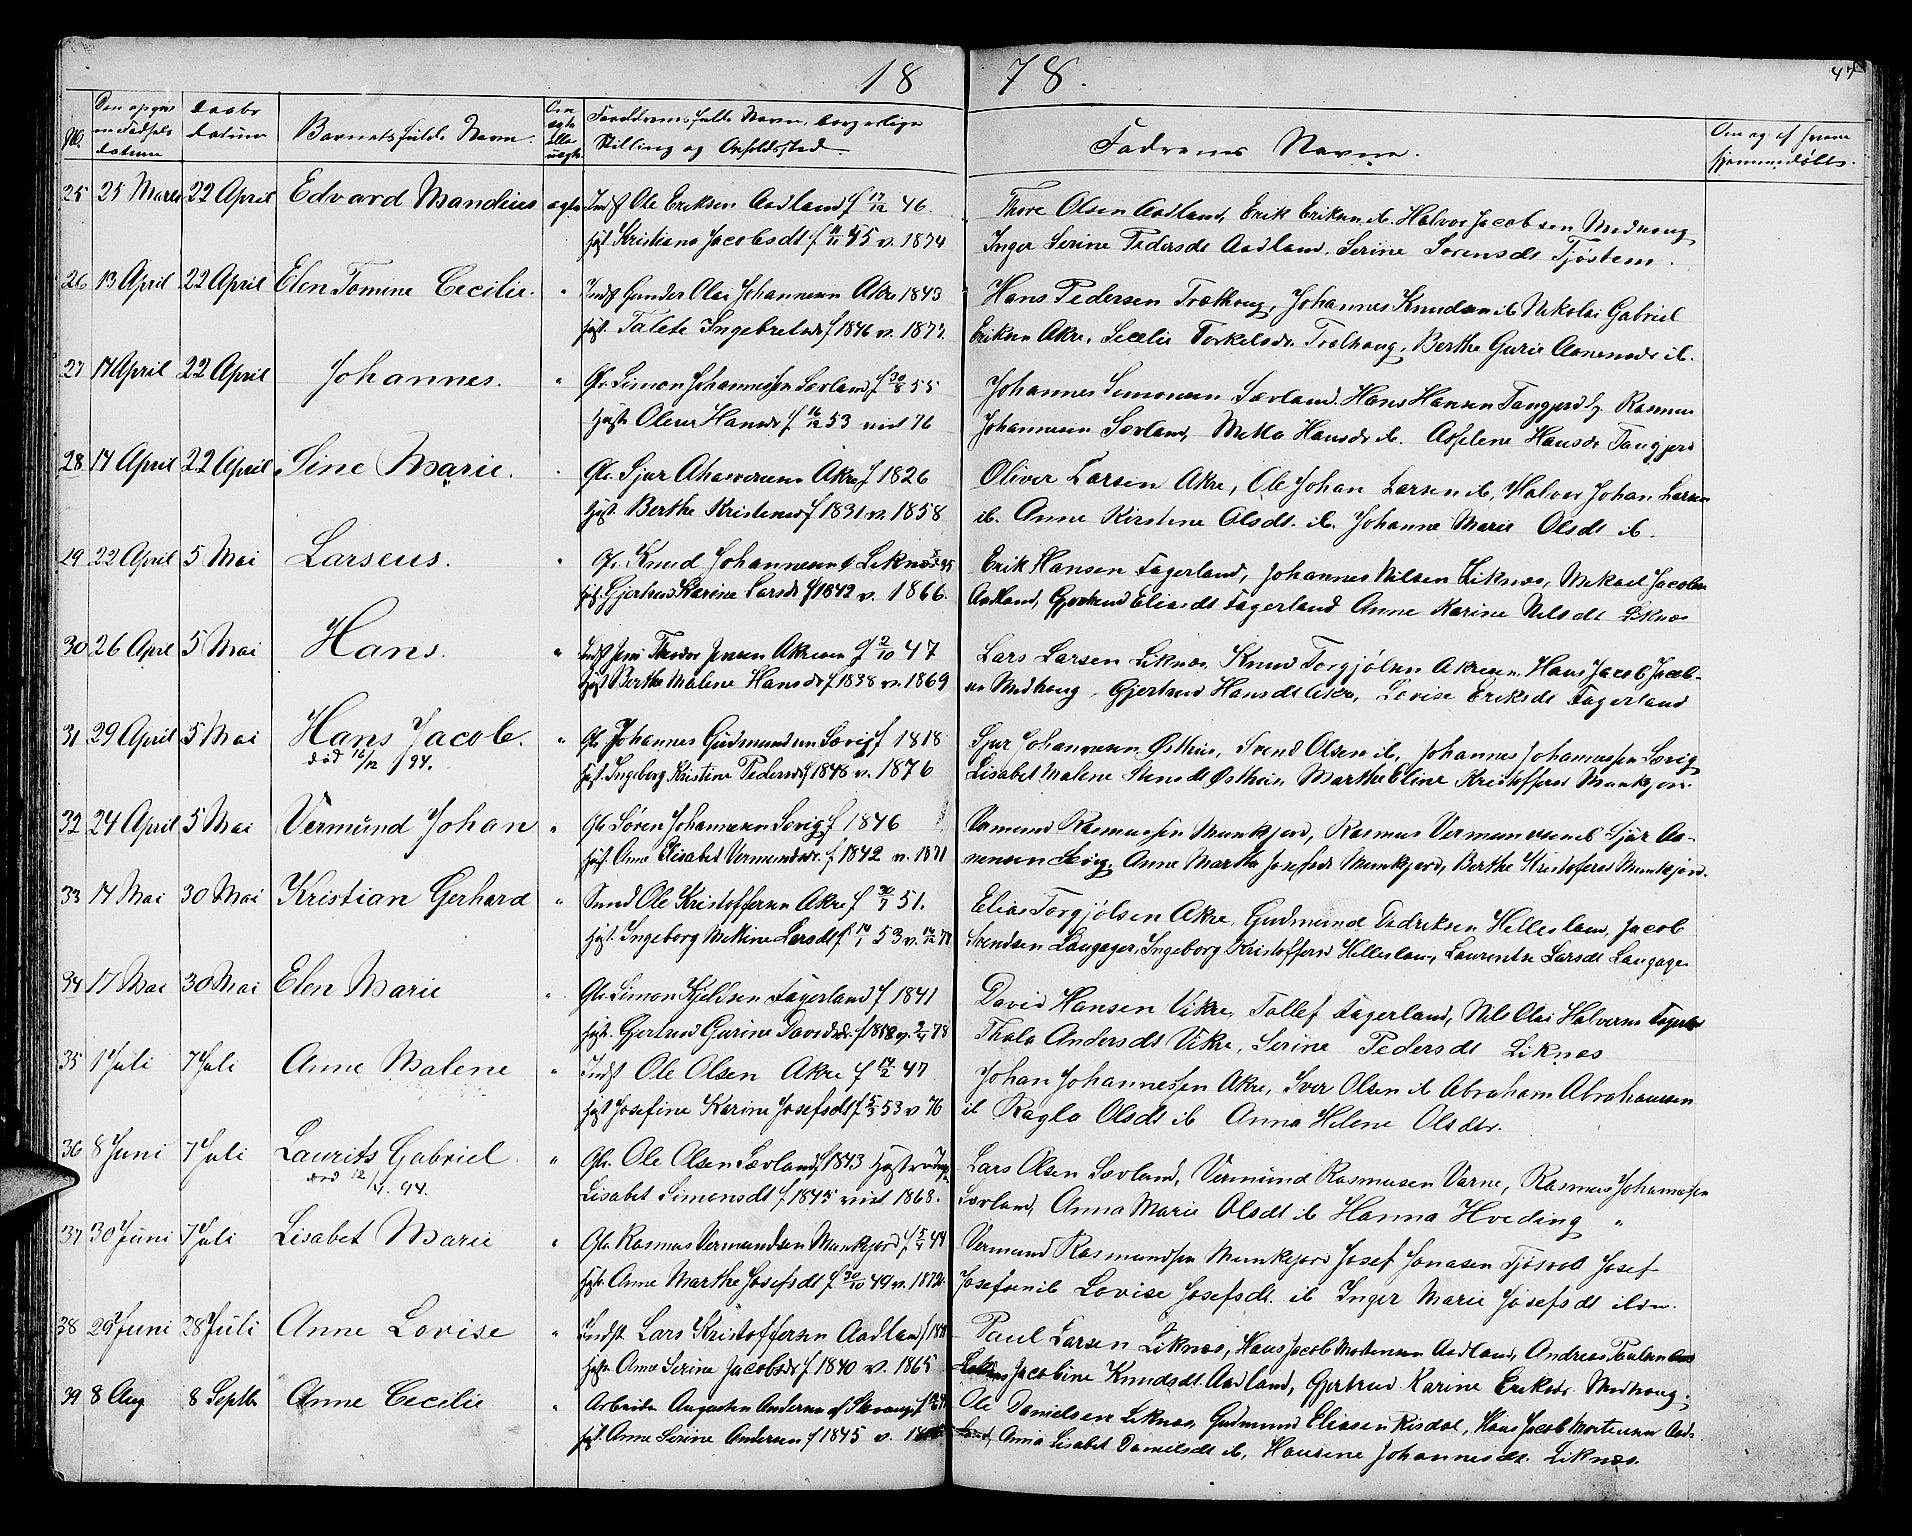 1878.
47
No.
Den opgivne Fødsels datum
Daabs datum
Barnets fulde Navn.
Om ægte eller uægte
Forældrenes fulde Navn, borgerlige
Stilling og Opholdssted.
Fadrenes Navne.
Om og af hvem
hjemmedøbt.
25 25 Marts 22 April Edvard Mandius ægte Indst Ole Eriksen Aadland f 17/12 46.
Hst. Kristiana Jacobsdt f 11/11 45 v. 1874
Thore Olsen Aadland, Erik Eriksen ib. Halvor Jacobsen Medhoug
Inger Serine Pedersdt Aadland. Serine Sørensdt Tjøstem.
26 13 April 22 April Elen Tomine Cecilie. " Indst Gunder Olai Johannesen Akre 1843
Hst. Talete Ingebretsdr f 1846 v. 1877.
Hans Pedersen Trælhoug, Johannes Knudsen ib Nikolai Gabriel
Eriksen Akre, Secelie Torkelsdr. Trælhoug, Berthe Gurie Aanensdr ib.
27 17 April 22 April Johannes. " Gbr. Simon Johannessen Sævland f 30/8 55
Hust. Olene Hansdr f 16/12 53 viet 76
Johannes Simonsen Sævland. Hans Hansen Tangjerd, Rasmus
Johannesen Sævland, Mekla Hansdr ib. Asselene Hansdr Tangjerd
28 17 April 22 April Sine Marie. " Gbr. Sjur Ahasverusen Akre f 1826
Hust Berthe Kristensdr f 1831 v. 1858
Oliver Larsen Akre, Ole Johan Larsen ib, Halvor Johan Larsen
ib. Anne Kirstene Olsdt. ib. Johanne Marie Olsdt ib.
29 22 April 5 Mai Larseus. " Gbr Knud Johannesen Liknæs 35
Hst. Gjertrud Karine Larsdr f 1842 v. 1866.
Erik Hansen Fagerland, Johannes Nilsen Liknæs, Mekael Jacobsen
Aadland, Gjertrud Eliasdt Fagerland Anne Karine Nilsdt Liknæs
30 26 April 5 Mai Hans. " Indst Jens Theodor Jensen Akreeen f 2/10 47
Hust Berthe Malene Hansdr f 1838 v. 1869
Lars Larsen Liknæs, Knud Torgjølsen Akreeen, Hans Jacob Jacob-
sen Medhoug, Gjertrud Hansdt Akre, Lovise Eriksdt Fagerland
31 29 April 5 Mai Hans Jacob. " Gbr Johannes Gudmundsen Sævig f 1818
død 16/12 94.
Hst. Ingeborg Kristine Pedersdr f 1848 v. 1876
Sjur Johannesen Østhus, Svend Olsen ib, Johannes Johannessen Sævig
Lisabet Malene Stensdt Østhus, Marthe Eline Kristoffersd Munkjon.
32 24 April 5 Mai Vermund Johan " Gbr Søren Johannesen Sævig f 1846
Hust. Anne Elisabet Vermundsdr. f 1842 v. 1871
Vermund Rasmussen Munkjord, Rasmus Vermundsen ib Sjur Aa-
nensen Sævig, Anne Marthe Josefsdt Munkjord, Berthe Kristofersd Munkjord.
33 14 Mai 30 Mai Kristian Gerhard " Smed Ole Kristoffersen Akre f 30/7 51.
Hst. Ingeborg Mektine Larsdt f 14/1 53 v. 14/12 77
Elias Torgjølsen Akre, Gudmund Didriksen Hellesland, Jacob
Svendsen Langager, Ingeborg Kristoffersd Hellesland, Laurentse Larsdt Langage
34 17 Mai 30 Mai Elen Marie " Gbr. Simon Kjeldsen Fagerland f 1841
Hst. Gjertrud Gurine Davidsdr. f 1852 v. 2/4 78
David Hansen Vikre, Tollef Fagerland, Nils Olai Halversen Fagerla
Thala Andersdt Vikre, Serine Pedersdt Liknæs
35 1 Juli 7 Juli Anne Malene " Indst Ole Olsen Akre f 14/2 47
Hst Josefine Karine Josefsdt f 5/3 53 v 76
Johan Johannessen Akre, Sver Olsen ib Abraham Abrahamsen
ib Ragla Olsdt ib Anna Helene Olsdtr.
36 8 Juni 7 Juli Laurits Gabriel " Gbr. Ole Olsen Sævland, f 1843
død 12/4. 94.
Lisabet Simonsdt f 1845 viet 1868.
Lars Olsen Sævland, Vermund Rasmusen Varne, Rasmus Johannessen
Sævland, Anna Marie Olsdt ib Hanna Hveding "
37 30 Juni 7 Juli Lisabet Marie " Gbr. Rasmus Vermundsen Munkjord f 5/4 44
Hst. Anne Marthe Josefsdt f 30/10 49 v. 1872.
Vermund Rasmundsen Munkjord Josef Jonasen Tjøsvol Josef
Josefsen ib Lovise Josefsdt. ib Inger Marie Josefsdt ibdm.
38 29 Juni 28 Juli Anne Lovise " Indst Lars Kristoffersen Aadland
Hst. Anne Serine Jacobsdr f 1840 v. 1865
Paul Larsen Liknæs, Hans Jacob Mortensen Aadland, Andreas Paulsen
Jacobine Knudsdt. Aadland, Gjertrud Karine Eriksdr Medhoug.
39 8 Aug 8 Septbr Anne Cecilie " Arbeider Augustin Andersen af Stavanger
Hst. Anne Serine Andersen f 1845 v.
Ole Danielsen Liknæs, Gudmund Eliasen Risdal, Hans Jacob Mortensen Aad-
land, Anna Lisabet Danielsdt ib, Hansine Johannesdt. Liknæs.